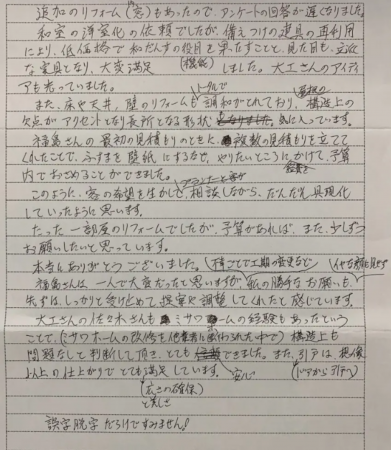 追加のリフォーム(窓)もあったので、アンケートの回答が遅くなりました。
和室の洋室化の依頼でしたが、備えつけの建具の再利用
により、低価格で和だんすの役目を果すことと、見た目も、立派
な家具となり、大変満足(機能)しました。大工さんのアイディ
アも光っていました。
また、床や天井、壁のリフォームもトータルで調和がとれており、構造上の
欠点がアクセントとなり長所となる形状 気に入っています。
福島さんの最初の見積もりのときに、複数の見積もりを立てて
くれたことで、ふすまを壁紙にするなど、やりたいところにかけて、予算
内でおさめることができました。
このように、客の希望を生かして、相談しながら、だんだん具現化
していったように思います。
たった一部屋のリフォームでしたが、予算があれば、また、少しずつ
お願いしたいと思っています。
本当にありがとうございました。
福島さんは、一人で大変だったと思いますが、私の勝手なお願いも、
先ずは、しっかりと受けとめて、提案や調整してくれたと感じています。
大工さんの佐々木さんも ミサワホームの経験もあったという
ことで、(ミサワホームの改修を他業者に 中で)構造上も
問題なしと判断して頂き、とても 安心できました。また、引戸は、想像
以上の仕上がりで とても満足しています。
(ドアから引戸へ)
(広さの確保)
と美しさ
誤字脱字だらけですみません!